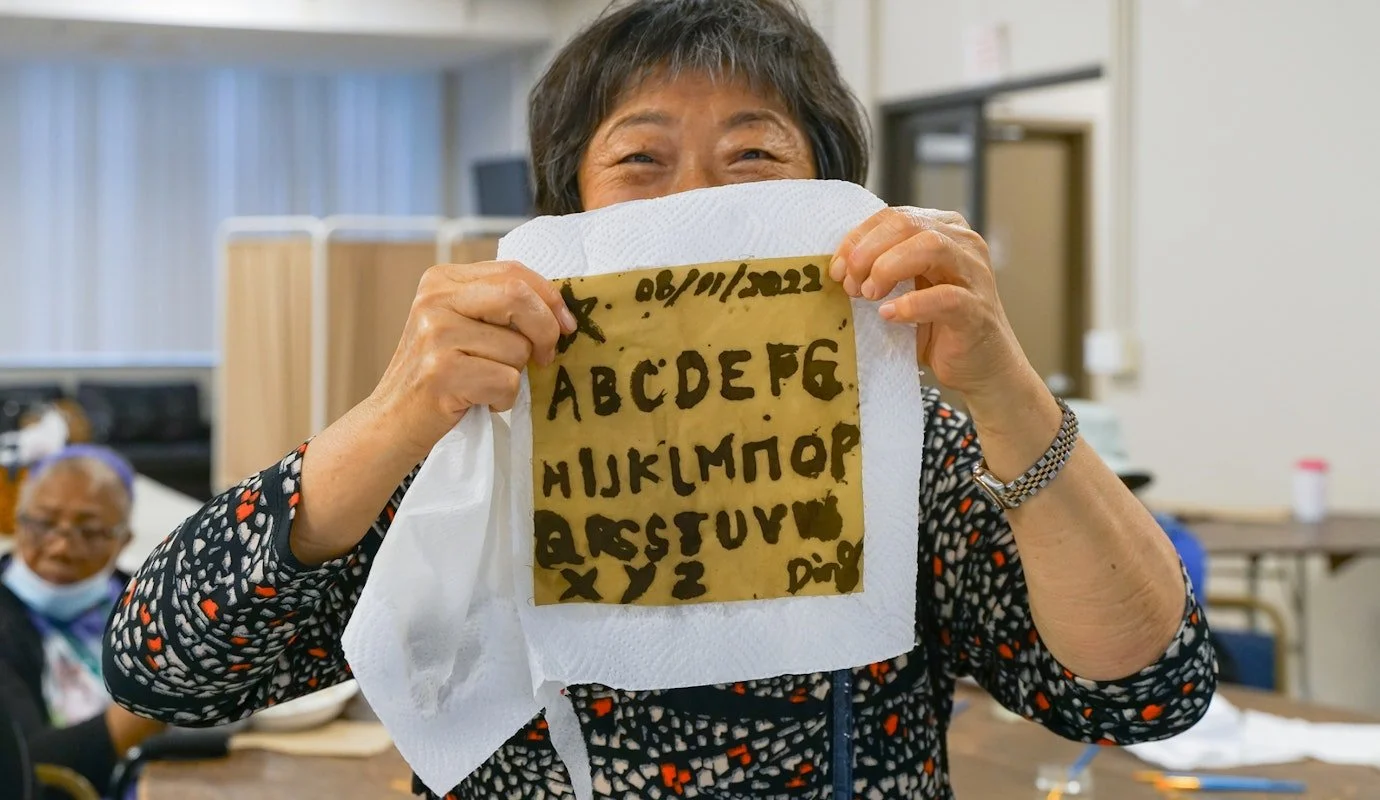 08/01/2022
ABCDEFG
HIJKLMnOP
QRSSTUVW
XYZ Ding